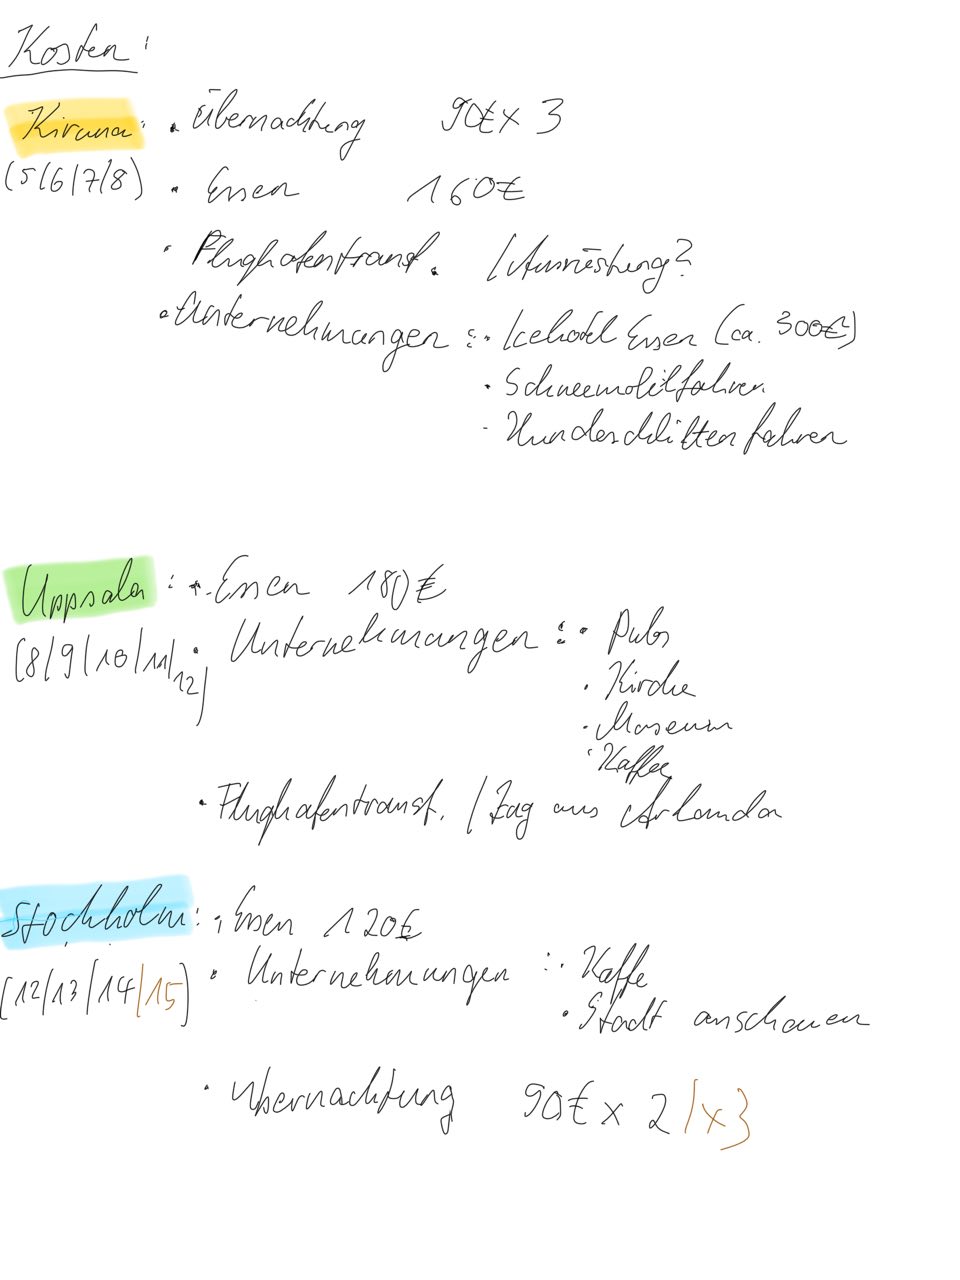 Kosten:
Kiruna: • Übernachtung 90€ x 3
(5/6/7/8) • Essen 160€
• Flughafentransf. / Ausrüstung?
• Unternehmungen : • Icehotel Essen (ca. 300€?)
• Schneemobilfahren
• Hundeschlitten fahren
Uppsala : • Essen 180€
(8/9/10/11/12) • Unternehmungen : • Pubs
• Kirche
• Museum
• Kaffee
• Flughafentransf. / Zug aus Arlanda
Stockholm: • Essen 120€
(12/13/14/15) • Unternehmungen : • Kaffe
• Stadt anschauen
• Übernachtung 90€ x 2 / x3